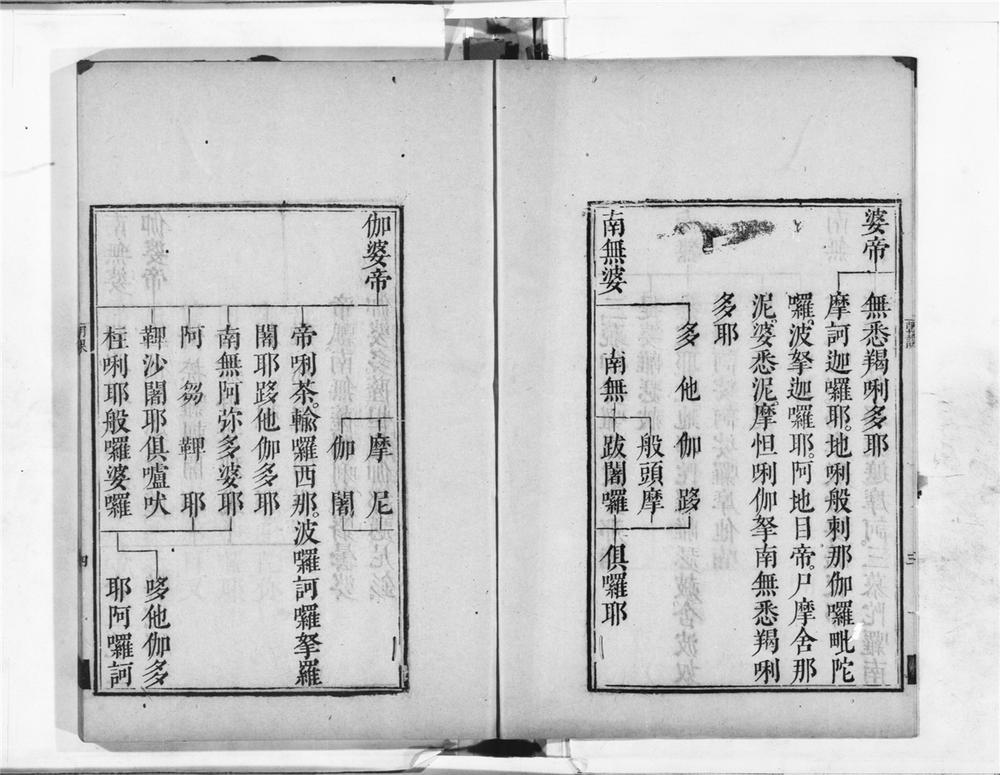 婆帝
無悉羯唎多耶
摩訶迦囉耶。地唎般剌那伽囉毗陀
囉。波拏迦囉耶。阿地目帝。尸摩舍那
泥。婆悉泥。摩怛唎伽拏南無悉羯唎
多耶
多他伽跢
般頭摩
南無婆
南無跋闍囉俱囉耶
伽婆帝
摩尼
伽闍
帝唎茶。輸囉西那。波囉訶囉拏羅
闍耶跢他伽多耶
南無阿弥多婆耶
阿芻鞞耶
鞞沙闍耶俱嚧吠
柱唎耶般囉婆囉
哆他伽多
耶阿囉訶
三
四